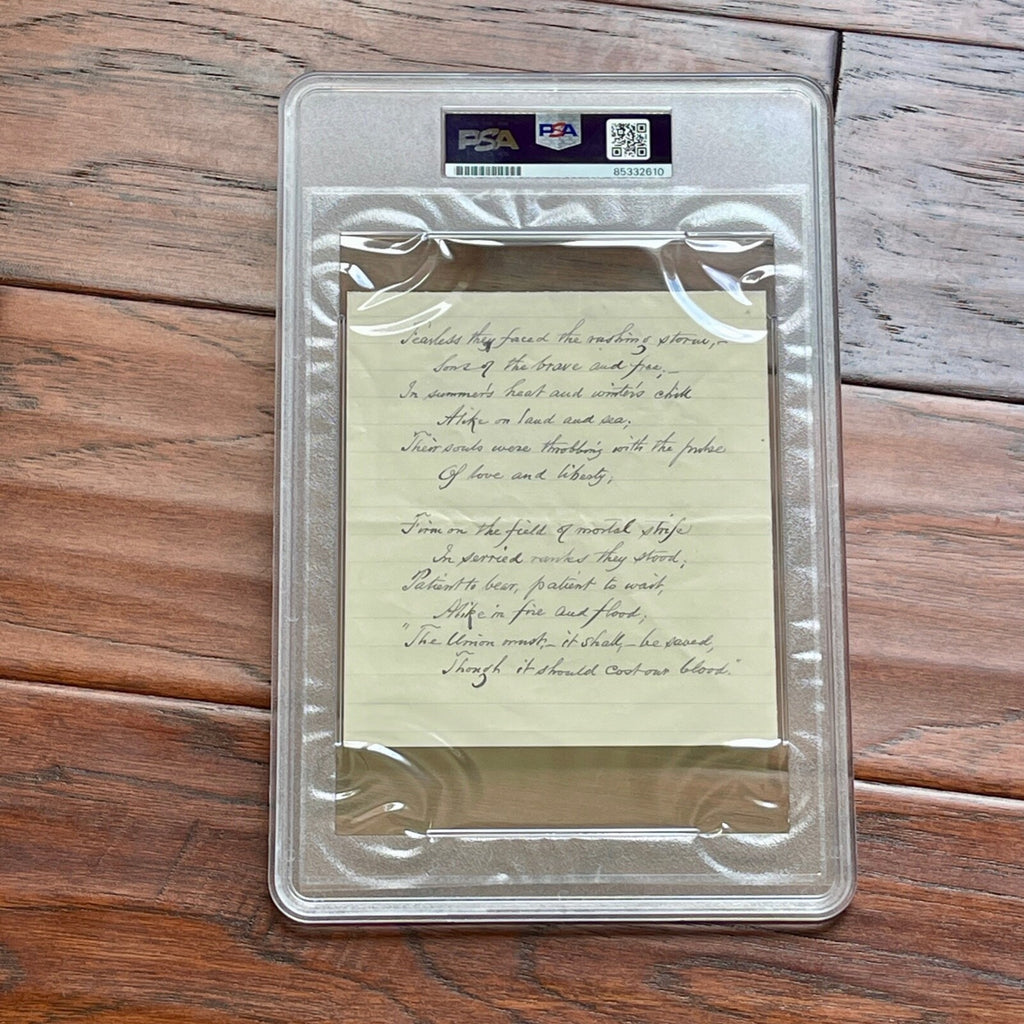 PSA
PSA
85332610
Fearless they faced the rushing storm,-
Sons of the brave and free,-
In summer's heat and winter's chill
Alike on land and sea;
Their souls were throbbing with the pulse
Of love and liberty;
Firm on the field of mortal strife
In serried ranks they stood;
Patient to bear, patient to wait,
Alike in fire and flood;
"The Union must,- it shall,- be saved,
Though it should cost our blood."